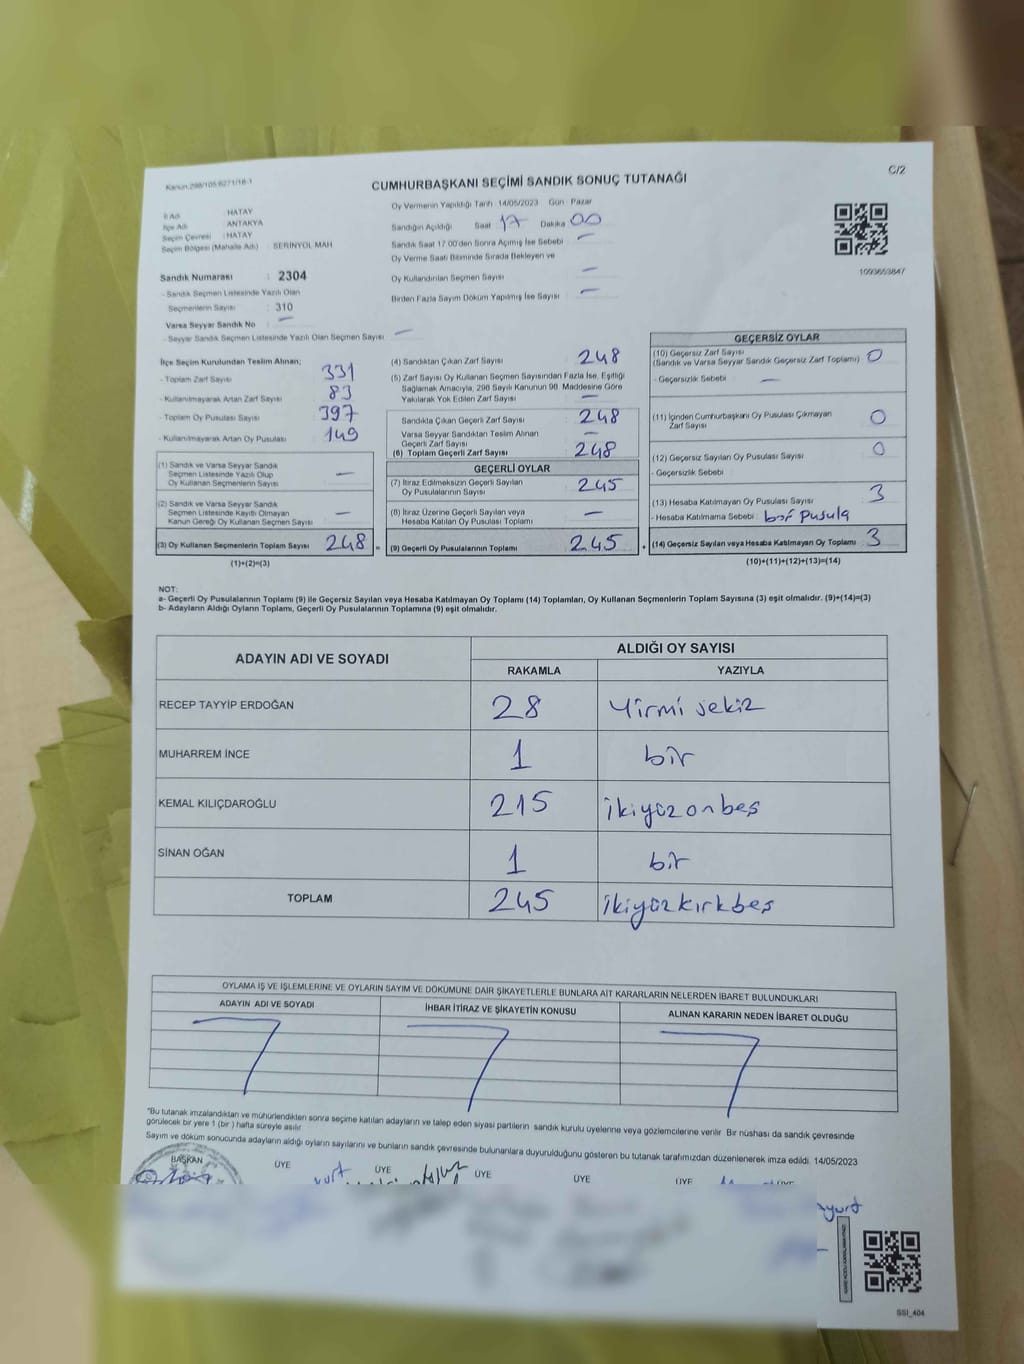 Kanun:298/105,6271/18-1
C/2
CUMHURBAŞKANI SEÇİMİ SANDIK SONUÇ TUTANAĞI
İl Adı : HATAY
İlçe Adı : ANTAKYA
Seçim Çevresi : HATAY
Seçim Bölgesi (Mahalle Adı) : SERİNYOL MAH.
Oy Vermenin Yapıldığı Tarih 14/05/2023 Gün Pazar
Sandığın Açıldığı Saat 17 Dakika 00
Sandık Saat 17.00'den Sonra Açılmış İse Sebebi —
Oy Verme Saati Bitiminde Sırada Bekleyen ve
Oy Kullandırılan Seçmen Sayısı —
Birden Fazla Sayım Döküm Yapılmış İse Sayısı —
1093653847
Sandık Numarası : 2304
- Sandık Seçmen Listesinde Yazılı Olan
Seçmenlerin Sayısı : 310
Varsa Seyyar Sandık No : —
- Seyyar Sandık Seçmen Listesinde Yazılı Olan Seçmen Sayısı : —
İlçe Seçim Kurulundan Teslim Alınan;
- Toplam Zarf Sayısı 331
- Kullanılmayarak Artan Zarf Sayısı 83
- Toplam Oy Pusulası Sayısı 397
- Kullanılmayarak Artan Oy Pusulası 149
(1) Sandık ve Varsa Seyyar Sandık
Seçmen Listesinde Yazılı Olup
Oy Kullanan Seçmenlerin Sayısı —
(2) Sandık ve Varsa Seyyar Sandık
Seçmen Listesinde Kayıtlı Olmayan
Kanun Gereği Oy Kullanan Seçmen Sayısı —
(3) Oy Kullanan Seçmenlerin Toplam Sayısı 248 =
(1)+(2)=(3)
(4) Sandıktan Çıkan Zarf Sayısı 248
(5) Zarf Sayısı Oy Kullanan Seçmen Sayısından Fazla İse, Eşitliği
Sağlamak Amacıyla, 298 Sayılı Kanunun 98. Maddesine Göre
Yakılarak Yok Edilen Zarf Sayısı —
Sandıkta Çıkan Geçerli Zarf Sayısı 248
Varsa Seyyar Sandıktan Teslim Alınan
Geçerli Zarf Sayısı —
(6) Toplam Geçerli Zarf Sayısı 248
GEÇERLİ OYLAR
(7) İtiraz Edilmeksizin Geçerli Sayılan
Oy Pusulalarının Sayısı 245
(8) İtiraz Üzerine Geçerli Sayılan veya
Hesaba Katılan Oy Pusulası Toplamı —
(9) Geçerli Oy Pusulalarının Toplamı 245 +
GEÇERSİZ OYLAR
(10) Geçersiz Zarf Sayısı
(Sandık ve Varsa Seyyar Sandık Geçersiz Zarf Toplamı) 0
- Geçersizlik Sebebi —
(11) İçinden Cumhurbaşkanı Oy Pusulası Çıkmayan
Zarf Sayısı 0
(12) Geçersiz Sayılan Oy Pusulası Sayısı 0
- Geçersizlik Sebebi
(13) Hesaba Katılmayan Oy Pusulası Sayısı 3
- Hesaba Katılmama Sebebi pusula
(14) Geçersiz Sayılan veya Hesaba Katılmayan Oy Toplamı 3
(10)+(11)+(12)+(13)=(14)
NOT:
a- Geçerli Oy Pusulalarının Toplamı (9) ile Geçersiz Sayılan veya Hesaba Katılmayan Oy Toplamı (14) Toplamları, Oy Kullanan Seçmenlerin Toplam Sayısına (3) eşit olmalıdır. (9)+(14)=(3)
b- Adayların Aldığı Oyların Toplamı, Geçerli Oy Pusulalarının Toplamına (9) eşit olmalıdır.
ADAYIN ADI VE SOYADI ALDIĞI OY SAYISI
RAKAMLA YAZIYLA
RECEP TAYYİP ERDOĞAN 28 Yirmi sekiz
MUHARREM İNCE 1 bir
KEMAL KILIÇDAROĞLU 215 ikiyüz onbeş
SİNAN OĞAN 1 bir
TOPLAM 245 ikiyüzkırkbeş
OYLAMA İŞ VE İŞLEMLERİNE VE OYLARIN SAYIM VE DÖKÜMÜNE DAİR ŞİKAYETLERLE BUNLARA AİT KARARLARIN NELERDEN İBARET BULUNDUKLARI
ADAYIN ADI VE SOYADI İHBAR İTİRAZ VE ŞİKAYETİN KONUSU ALINAN KARARIN NEDEN İBARET OLDUĞU
"Bu tutanak imzalandıktan ve mühürlendikten sonra seçime katılan adayların ve talep eden siyasi partilerin sandık kurulu üyelerine veya gözlemcilerine verilir. Bir nüshası da sandık çevresinde
görülecek bir yere 1 (bir) hafta süreyle asılır.
Sayım ve döküm sonucunda adayların aldığı oyların sayılarını ve bunların sandık çevresinde bulunanlara duyurulduğunu gösteren bu tutanak tarafımızdan düzenlenerek imza edildi. 14/05/2023
BAŞKAN ÜYE ÜYE ÜYE ÜYE ÜYE ÜYE
SSI_404